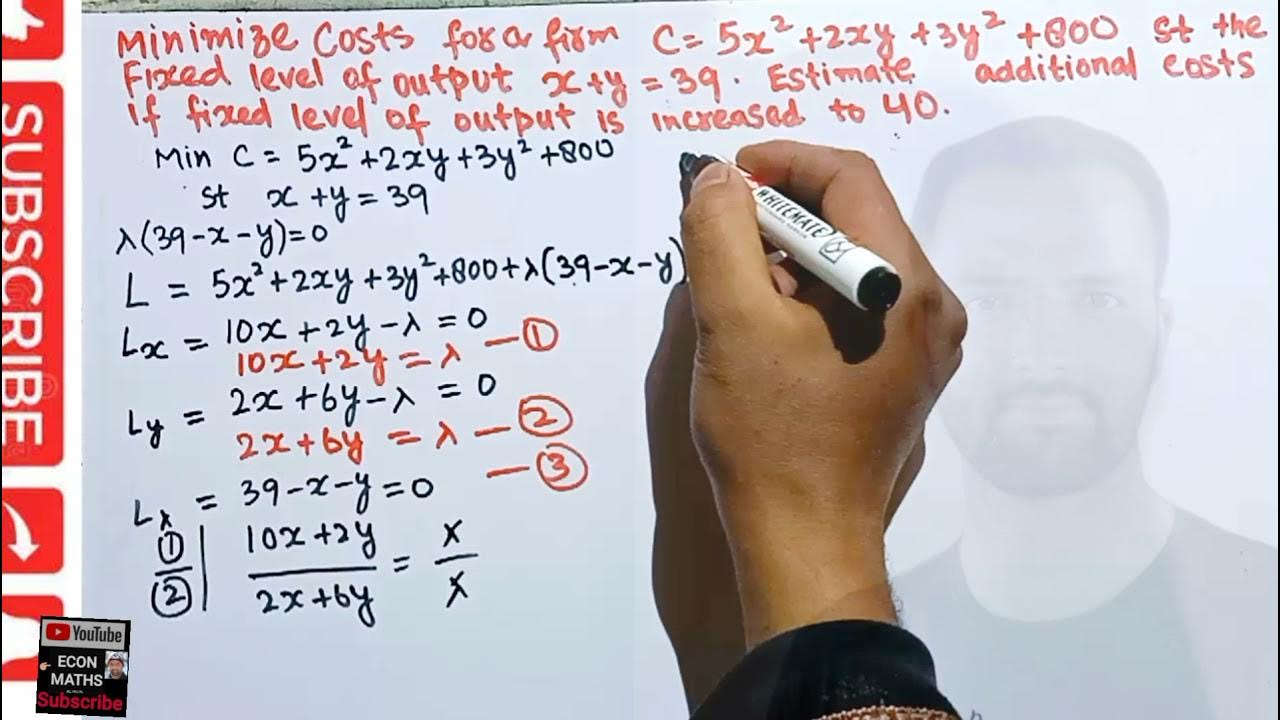 Minimize Costs for a firm C = 5x² + 2xy + 3y² + 800 st the
Fixed level of output x + y = 39. Estimate additional costs
if fixed level of output is increased to 40.
Min C = 5x² + 2xy + 3y² + 800
st x + y = 39
λ(39 - x - y) = 0
L = 5x² + 2xy + 3y² + 800 + λ(39 - x - y)
Lx = 10x + 2y - λ = 0
10x + 2y = λ — ①
Ly = 2x + 6y - λ = 0
2x + 6y = λ — ②
Lλ = 39 - x - y = 0 — ③
①/② | (10x + 2y)/(2x + 6y) = λ/λ
WHITEMATE
SUBSCRIBE
YouTube
ECON
MATHS
Subscribe